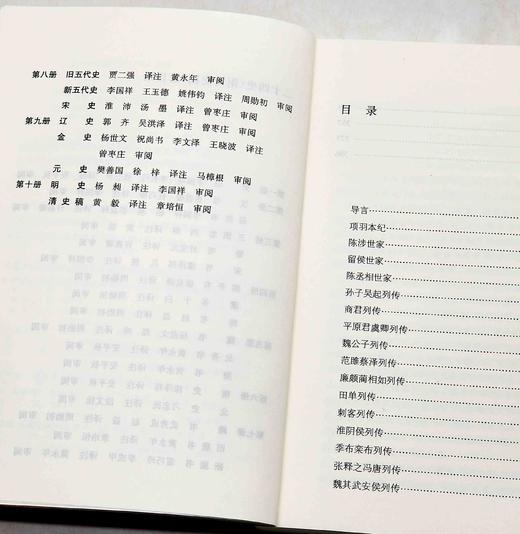 第八册 旧五代史 贾二强 译注 黄永年 审阅
新五代史 李国祥 王玉德 姚伟钧 译注 周勋初 审阅
宋 史 淮沛 汤墨 译注 曾枣庄 审阅
第九册 辽 史 郭齐 吴洪泽 译注 曾枣庄 审阅
金 史 杨世文 祝尚书 李文泽 王晓波 译注
曾枣庄 审阅
元 史 樊善国 徐梓 译注 马樟根 审阅
第十册 明 史 杨昶 译注 李国祥 审阅
清史稿 黄毅 译注 章培恒 审阅
目 录
导言
项羽本纪
陈涉世家
留侯世家
陈丞相世家
孙子吴起列传
商君列传
平原君虞卿列传
魏公子列传
范雎蔡泽列传
廉颇蔺相如列传
田单列传
刺客列传
淮阴侯列传
季布栾布列传
张释之冯唐列传
魏其武安侯列传